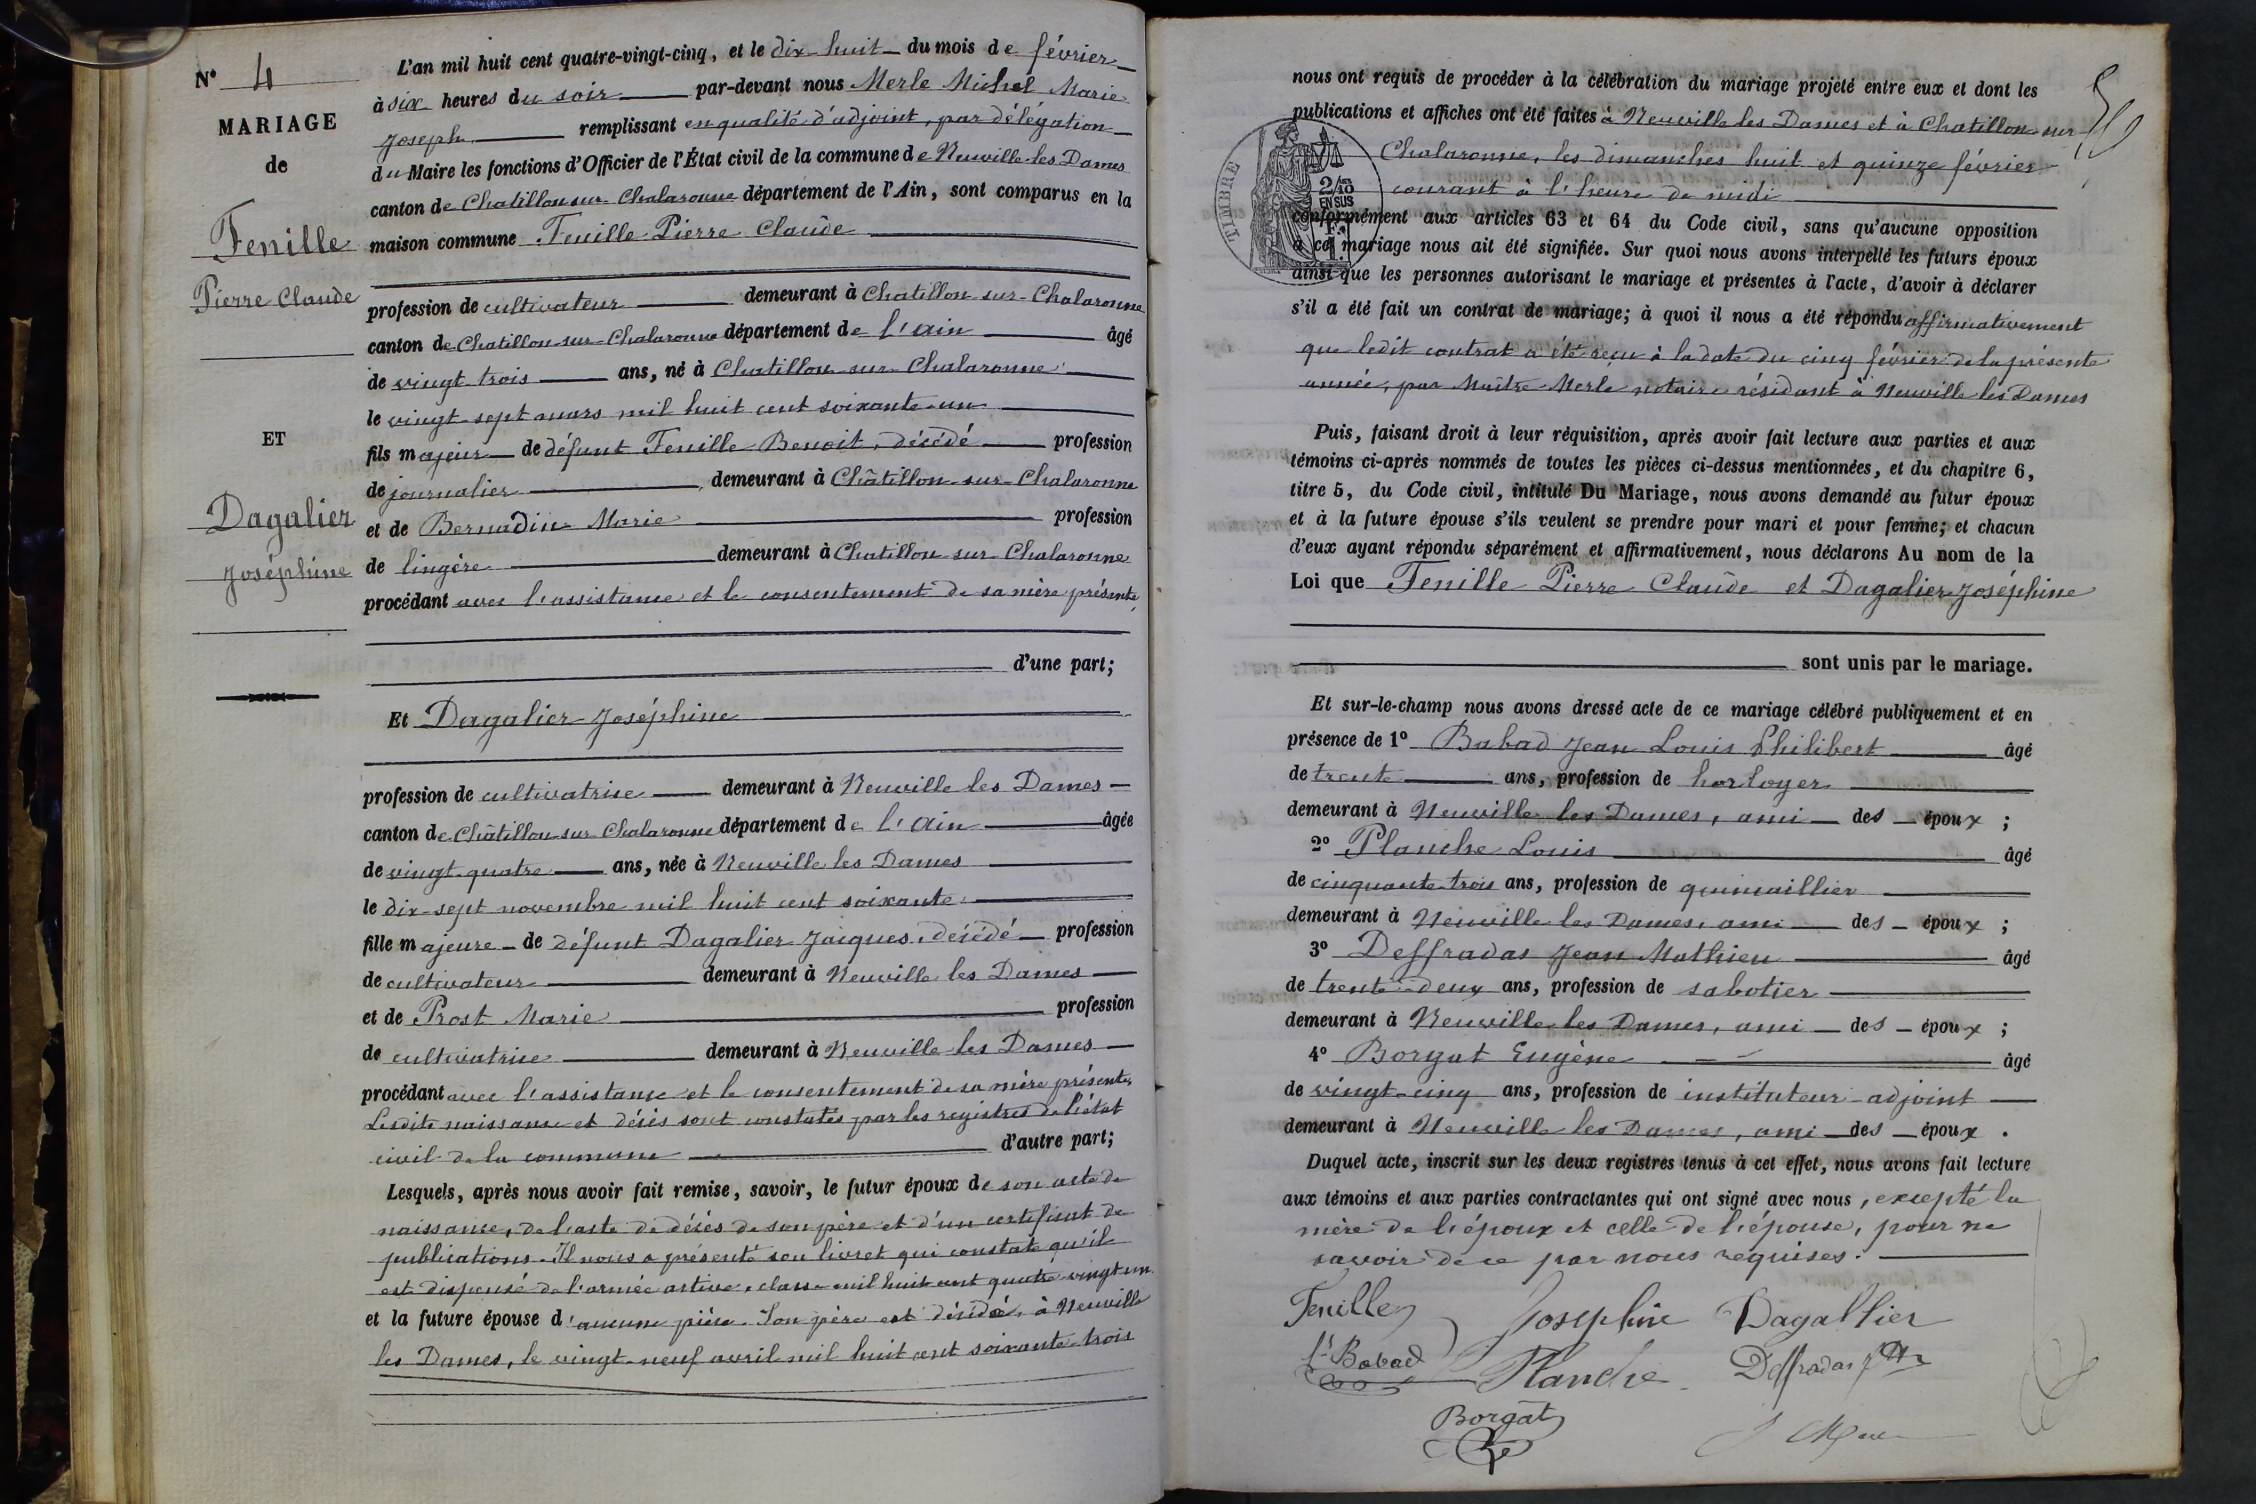 N° 4
MARIAGE
de
Fenille
Pierre Claude
ET
Dagalier
Joséphine
L'an mil huit cent quatre-vingt-cinq, et le dix-huit du mois de février
à six heures du soir par-devant nous Merle Michel Marie
Joseph remplissant en qualité d'adjoint, par délégation
du Maire les fonctions d'Officier de l'État civil de la commune de Neuville les Dames
canton de Chatillon sur Chalaronne département de l'Ain, sont comparus en la
maison commune Fenille Pierre Claude
profession de cultivateur demeurant à Chatillon-sur-Chalaronne
canton de Chatillon-sur-Chalaronne département de l'ain âgé
de vingt trois ans, né à Chatillon sur Chalaronne
le vingt sept mars mil huit cent soixante-un
fils majeur de défunt Fenille Benoit, décédé profession
de journalier demeurant à Châtillon-sur-Chalaronne
et de Bernadin Marie profession
de lingère demeurant à Chatillon-sur-Chalaronne
procédant avec l'assistance et le consentement de sa mère présente,
d'une part;
Et Dagalier Joséphine
profession de cultivatrice demeurant à Neuville les Dames
canton de Châtillon sur Chalaronne département de l'Ain âgée
de vingt-quatre ans, née à Neuville les Dames
le dix-sept novembre mil huit cent soixante
fille majeure de défunt Dagalier Jacques, décédé profession
de cultivateur demeurant à Neuville les Dames
et de Prost Marie profession
de cultivatrice demeurant à Neuville les Dames
procédant avec l'assistance et le consentement de sa mère présente,
Lesdits naissance et décès sont constatés par les registres de l'état
civil de la commune d'autre part;
Lesquels, après nous avoir fait remise, savoir, le futur époux de son acte de
naissance, de l'acte de décès de son père et d'un certificat de
publications. Il nous a présenté son livret qui constate qu'il
est dispensé de l'armée active, classe mil huit cent quatre vingt un
et la future épouse d'aucune pièce. Son père est décédé, à Neuville
les Dames, le vingt-neuf avril mil huit cent soixante-trois
nous ont requis de procéder à la célébration du mariage projeté entre eux et dont les
publications et affiches ont été faites à Neuville les Dames et à Chatillon-sur
Chalaronne, les dimanches huit et quinze février
courant à l'heure de midi
TIMBRE
2/10 EN SUS
conformément aux articles 63 et 64 du Code civil, sans qu'aucune opposition
à ce mariage nous ait été signifiée. Sur quoi nous avons interpellé les futurs époux
ainsi que les personnes autorisant le mariage et présentes à l'acte, d'avoir à déclarer
s'il a été fait un contrat de mariage; à quoi il nous a été répondu affirmativement
que ledit contrat a été reçu à la date du cinq février de la présente
année, par Maître Merle notaire résidant à Neuville les Dames
Puis, faisant droit à leur réquisition, après avoir fait lecture aux parties et aux
témoins ci-après nommés de toutes les pièces ci-dessus mentionnées, et du chapitre 6,
titre 5, du Code civil, intitulé Du Mariage, nous avons demandé au futur époux
et à la future épouse s'ils veulent se prendre pour mari et pour femme; et chacun
d'eux ayant répondu séparément et affirmativement, nous déclarons Au nom de la
Loi que Fenille Pierre Claude et Dagalier Joséphine
sont unis par le mariage.
Et sur-le-champ nous avons dressé acte de ce mariage célébré publiquement et en
présence de 1° Babad Jean Louis Philibert âgé
de trente ans, profession de horloger
demeurant à Neuville les Dames, ami des époux ;
2° Planche Louis âgé
de cinquante-trois ans, profession de quincaillier
demeurant à Neuville les Dames, ami des époux ;
3° Deffradas Jean Mathieu âgé
de trente-deux ans, profession de sabotier
demeurant à Neuville les Dames, ami des époux ;
4° Borgat Eugène âgé
de vingt-cinq ans, profession de instituteur-adjoint
demeurant à Neuville les Dames, ami des époux .
Duquel acte, inscrit sur les deux registres tenus à cet effet, nous avons fait lecture
aux témoins et aux parties contractantes qui ont signé avec nous, excepté la
mère de l'époux et celle de l'épouse, pour ne
savoir de ce par nous requises.
Fenille Josephine Dagallier
Babad Planche Deffradas
Borgat